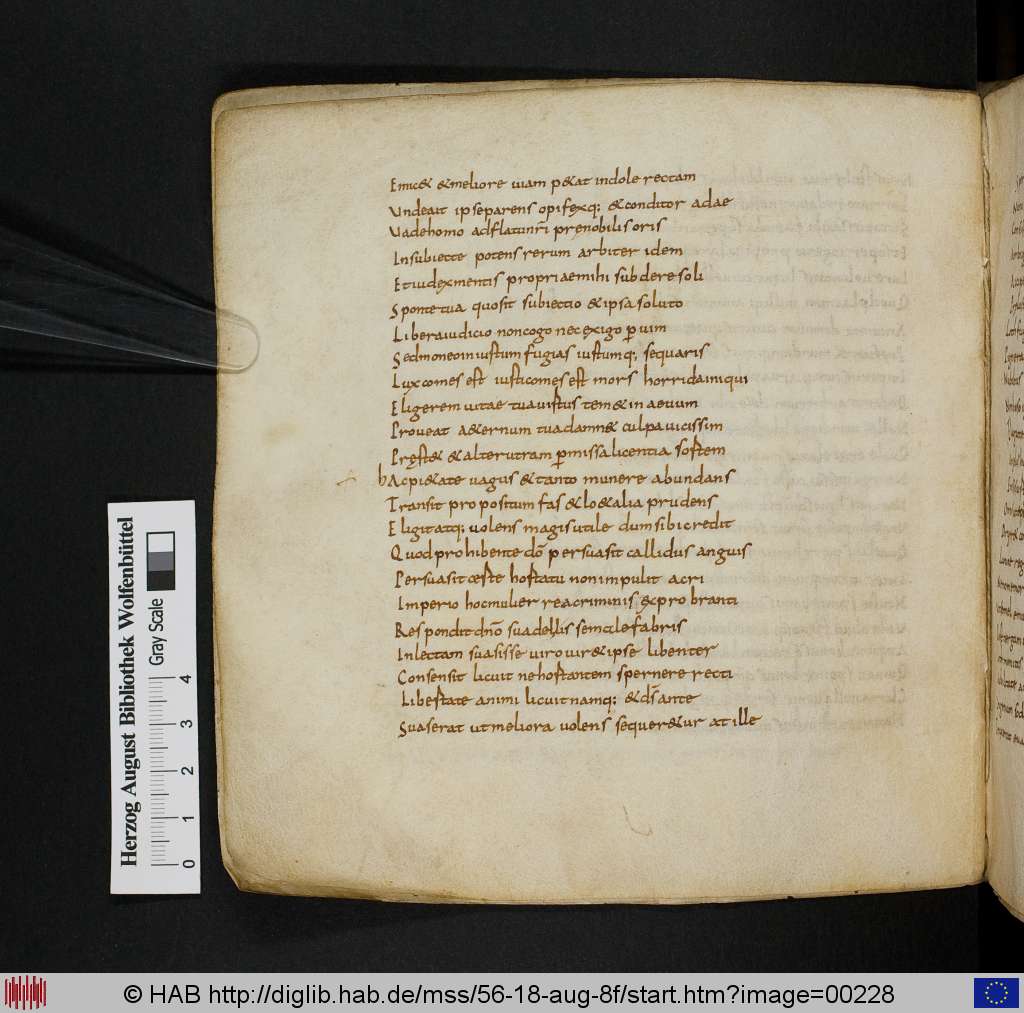 Emic& &meliore uiam p&at indole rectam
Undeait ipseparens opifęxq; &conditor adae
Uadehomo adflatunr̄i pręnobilis oris
Insubiecte potens rerum arbiter idem
Etiudexmentis propriaemihi subdere soli
Spontetua quosit subiectio &ipsa soluto
Liberaiudicio noncogo nec exigo p uim
Sedmoneoiniustum fugias iustumq; sequaris
Lux comes est iusticomes est mors horridainiqui
Eligerem uitae tuauirtus tem&in aeuum
Proueat a&ernum tuadamn& culpa uicissim
Pręst& &alterutram pmissa licentia sortem
hAc pi&ate uagus &tanto munere abundans
Transit propositum fas &lo&alia prudens
Eligitatq; uolens magis utile dum sibi credit
Quod prohibente dō persuasit callidus anguis
Persuasit certe hortatu non impulit acri
Imperio hoc mulier rea criminis exprobranti
Respondit dn̄o suadellis semet ile fabris
Inlectam suasisse uiro uir&ipse libenter
Consensit licuit nehortantem spernere recti
Libertate animi licuit namq; &ds̄ ante
Suaserat ut meliora uolens sequer&ur at ille
Herzog August Bibliothek Wolfenbüttel
Gray Scale
0 1 2 3 4
© HAB http://diglib.hab.de/mss/56-18-aug-8f/start.htm?image=00228